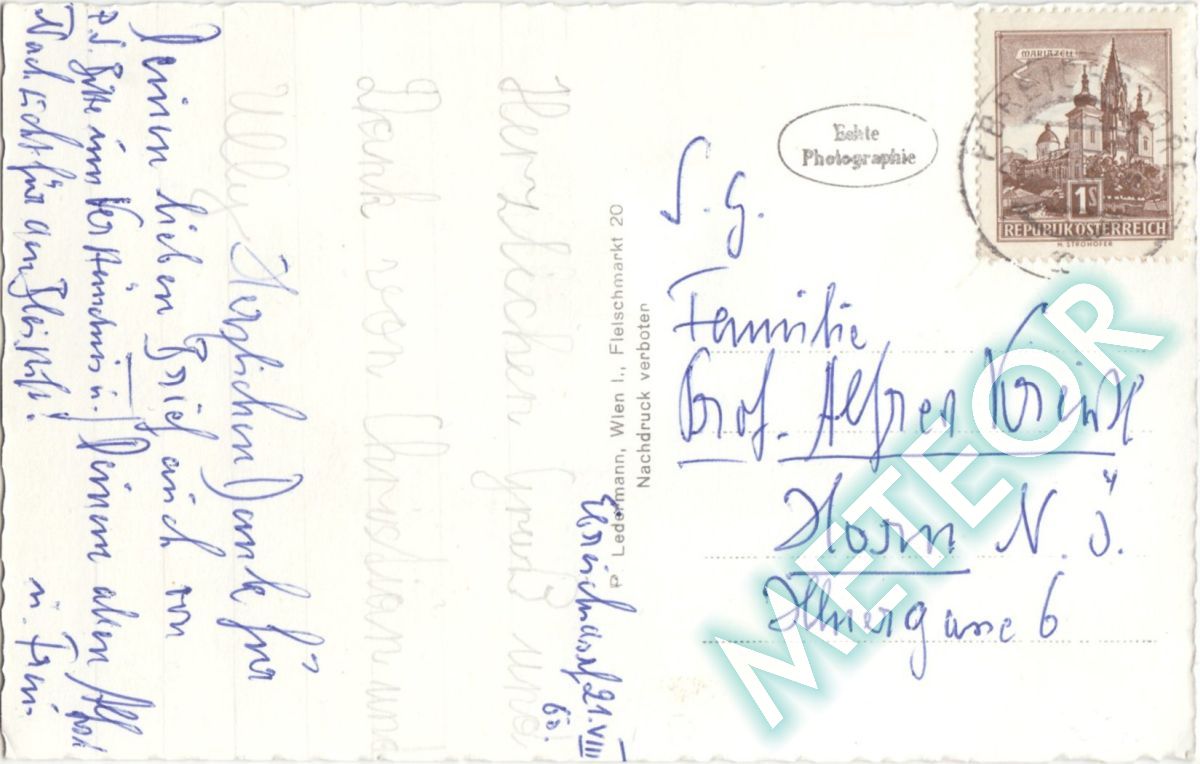 MARIAZELL
1S
REPUBLIK ÖSTERREICH
H. STROHOFER
Echte
Photographie
P. Ledermann, Wien I., Fleischmarkt 20
Nachdruck verboten
S. g.
Familie
Prof. Alfred
Horn N. Ö.
6
21. VIII
60.
Herzlichen Gruß und
Dank von Christian und
Ully
Herzlichen Dank für
Deinen lieben Brief auch von
Deinem alten
P.S. Bitte um Verständnis u.
Nachsicht für
METEOR